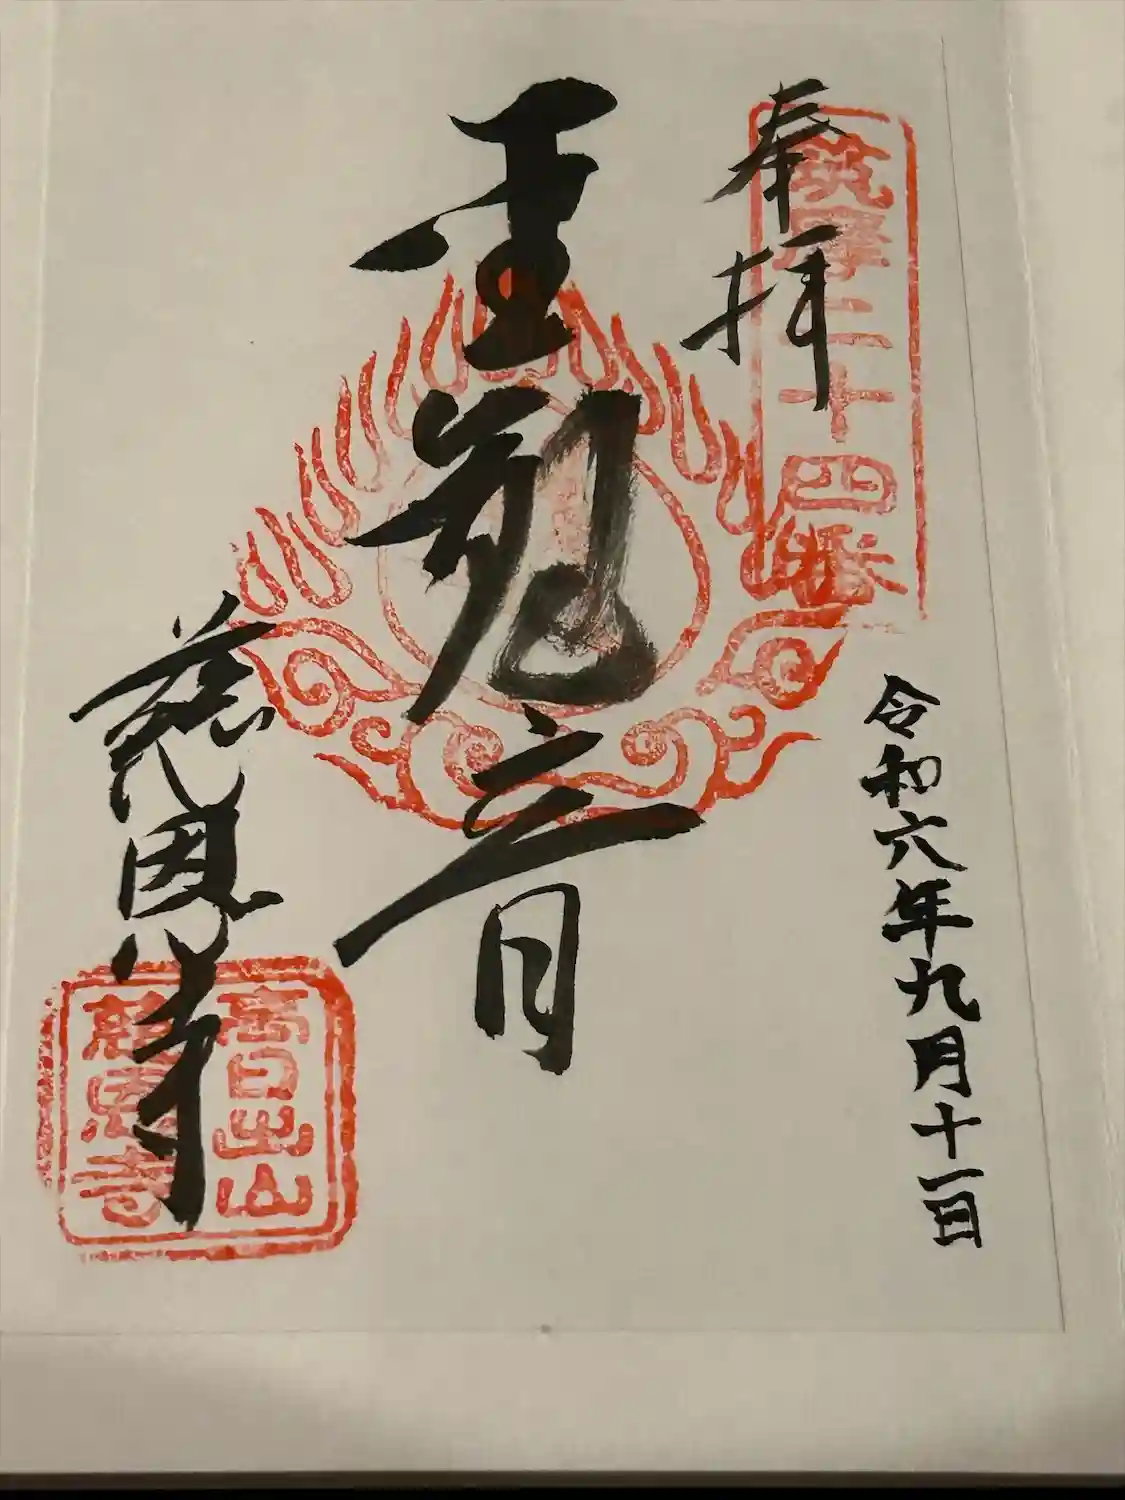 奉拝
筑摩二十四番
令和六年九月十一日
聖観音
慈恩寺
高日出山
慈恩寺